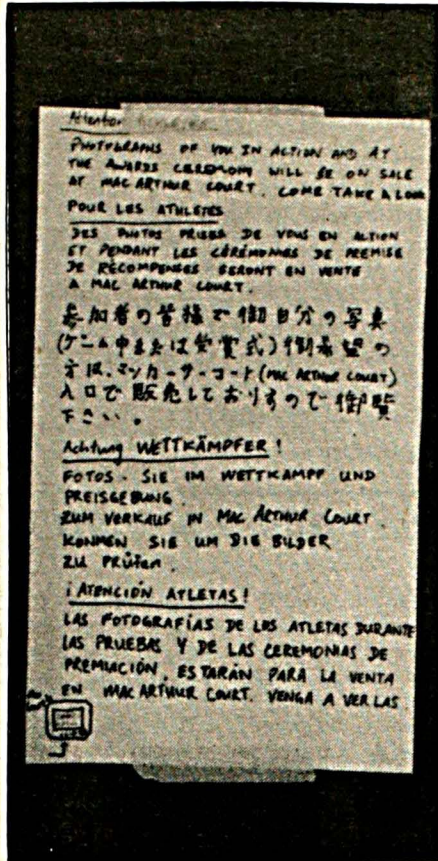 Attention
PHOTOGRAPHS OF YOU IN ACTION AND AT
THE AWARDS CEREMONY WILL BE ON SALE
AT MAC ARTHUR COURT. COME TAKE A LOOK
POUR LES ATHLETES
DES PHOTOS PRISES DE VOUS EN ACTION
ET PENDANT LES CÉRÉMONIES DE REMISE
DE RÉCOMPENSES SERONT EN VENTE
A MAC ARTHUR COURT.
参加者の皆様で御自分の写真
(ゲーム中または受賞式)御希望の
方は、マッカーサーコート(MAC ARTHUR COURT)
入口で販売しておりますので御覧
下さい。
Achtung WETTKÄMPFER!
FOTOS - SIE IM WETTKAMPF UND
PREISGEBUNG
ZUM VERKAUF IN MAC ARTHUR COURT.
KONNEN SIE UM DIE BILDER
ZU PRÜfen.
¡ATENCIÓN ATLETAS!
LAS FOTOGRAFÍAS DE LOS ATLETAS DURANTE
LAS PRUEBAS Y DE LAS CEREMONIAS DE
PREMIACIÓN, ESTARÁN PARA LA VENTA
EN MAC ARTHUR COURT. VENGA A VERLAS